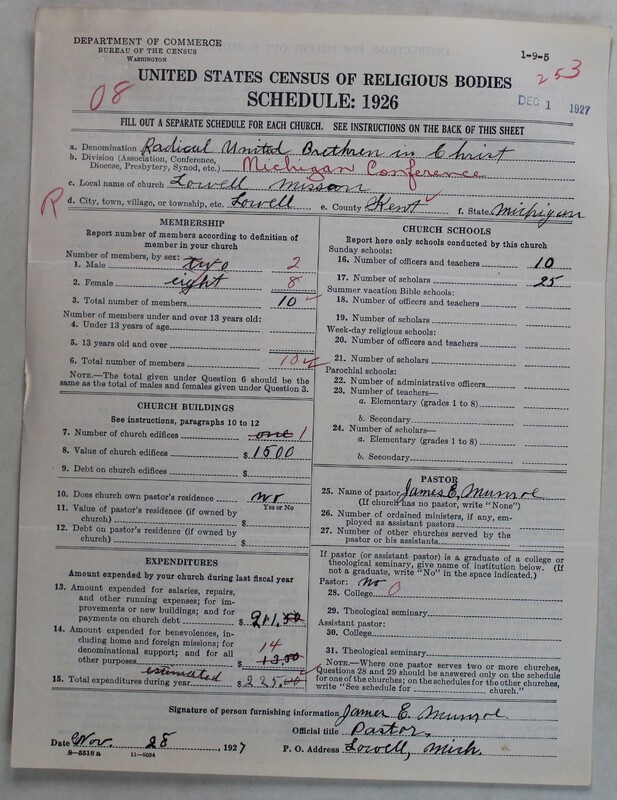 DEPARTMENT OF COMMERCE
BUREAU OF THE CENSUS
WASHINGTON
1-9-5
253
08
UNITED STATES CENSUS OF RELIGIOUS BODIES
SCHEDULE: 1926
DEC 1 1927
FILL OUT A SEPARATE SCHEDULE FOR EACH CHURCH. SEE INSTRUCTIONS ON THE BACK OF THIS SHEET
a. Denomination Radical United Brethren in Christ
b. Division (Association, Conference, Diocese, Presbytery, Synod, etc.) Michigan Conference
c. Local name of church Lowell Misson
R d. City, town, village, or township, etc. Lowell e. County Kent f. State Michigan
MEMBERSHIP
Report number of members according to definition of member in your church
Number of members, by sex:
1. Male two 2
2. Female eight 8
3. Total number of members 10
Number of members under and over 13 years old:
4. Under 13 years of age
5. 13 years old and over
6. Total number of members 10
NOTE.—The total given under Question 6 should be the same as the total of males and females given under Question 3.
CHURCH BUILDINGS
See instructions, paragraphs 10 to 12
7. Number of church edifices one 1
8. Value of church edifices $ 1500
9. Debt on church edifices $
10. Does church own pastor's residence no
Yes or No
11. Value of pastor's residence (if owned by church) $
12. Debt on pastor's residence (if owned by church) $
EXPENDITURES
Amount expended by your church during last fiscal year
13. Amount expended for salaries, repairs, and other running expenses; for improvements or new buildings; and for payments on church debt $ 211.50
14. Amount expended for benevolences, including home and foreign missions; for denominational support; and for all other purposes 14 13.50
estimated
15. Total expenditures during year $ 225.00
CHURCH SCHOOLS
Report here only schools conducted by this church
Sunday schools:
16. Number of officers and teachers 10
17. Number of scholars 25
Summer vacation Bible schools:
18. Number of officers and teachers
19. Number of scholars
Week-day religious schools:
20. Number of officers and teachers
21. Number of scholars
Parochial schools:
22. Number of administrative officers
23. Number of teachers—
a. Elementary (grades 1 to 8)
b. Secondary
24. Number of scholars—
a. Elementary (grades 1 to 8)
b. Secondary
PASTOR
25. Name of pastor James E. Munroe
(If church has no pastor, write "None")
26. Number of ordained ministers, if any, employed as assistant pastors
27. Number of other churches served by the pastor or his assistants
If pastor (or assistant pastor) is a graduate of a college or theological seminary, give name of institution below. (If not a graduate, write "No" in the space indicated.)
Pastor: no
28. College 0
29. Theological seminary
Assistant pastor:
30. College
31. Theological seminary
NOTE.—Where one pastor serves two or more churches, Questions 28 and 29 should be answered only on the schedule for one of the churches; on the schedules for the other churches, write "See schedule for church."
Signature of person furnishing information James E. Munroe
Official title Pastor.
Date Nov. 28, 1927 P. O. Address Lowell, Mich.
8—5518 a 11—9054